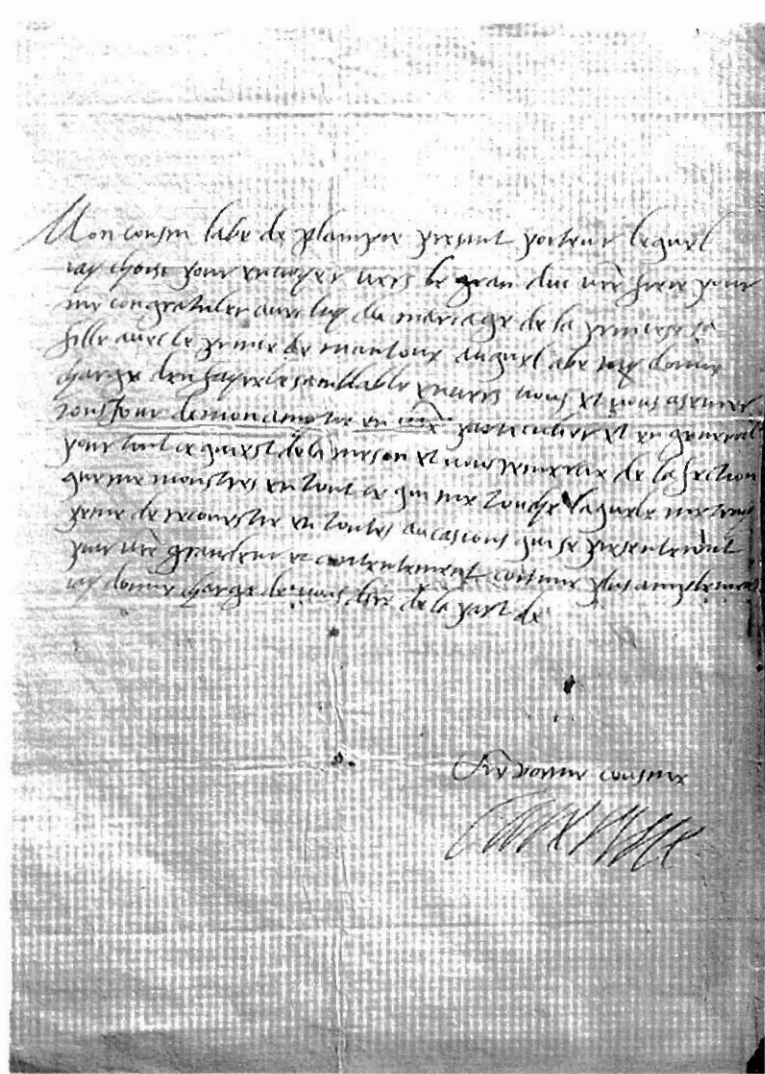 Mon cousin labe de plainpie present porteur lequel
iay choisi pour envoyer vers le gran duc vre frere pour
me congratuler avec luy du mariage de la princese sa
fille avec le prinse de mantoue auquel abe iay donne
charge den fayre le semblable envers vous et vous aseurer
tousjour de mon amytie en vre particulier et en general
pour tout ce qui est de la meson et vous remersie de la fection
que me monstres en tout ce qui me touche laquele metray
peine de reconestre en toutes aucasions qui se presenteront
pour vre grandeur et contentement comme plus amplement
iay donne charge de vous dire de la part de
Vre bonne cousine
Caterine